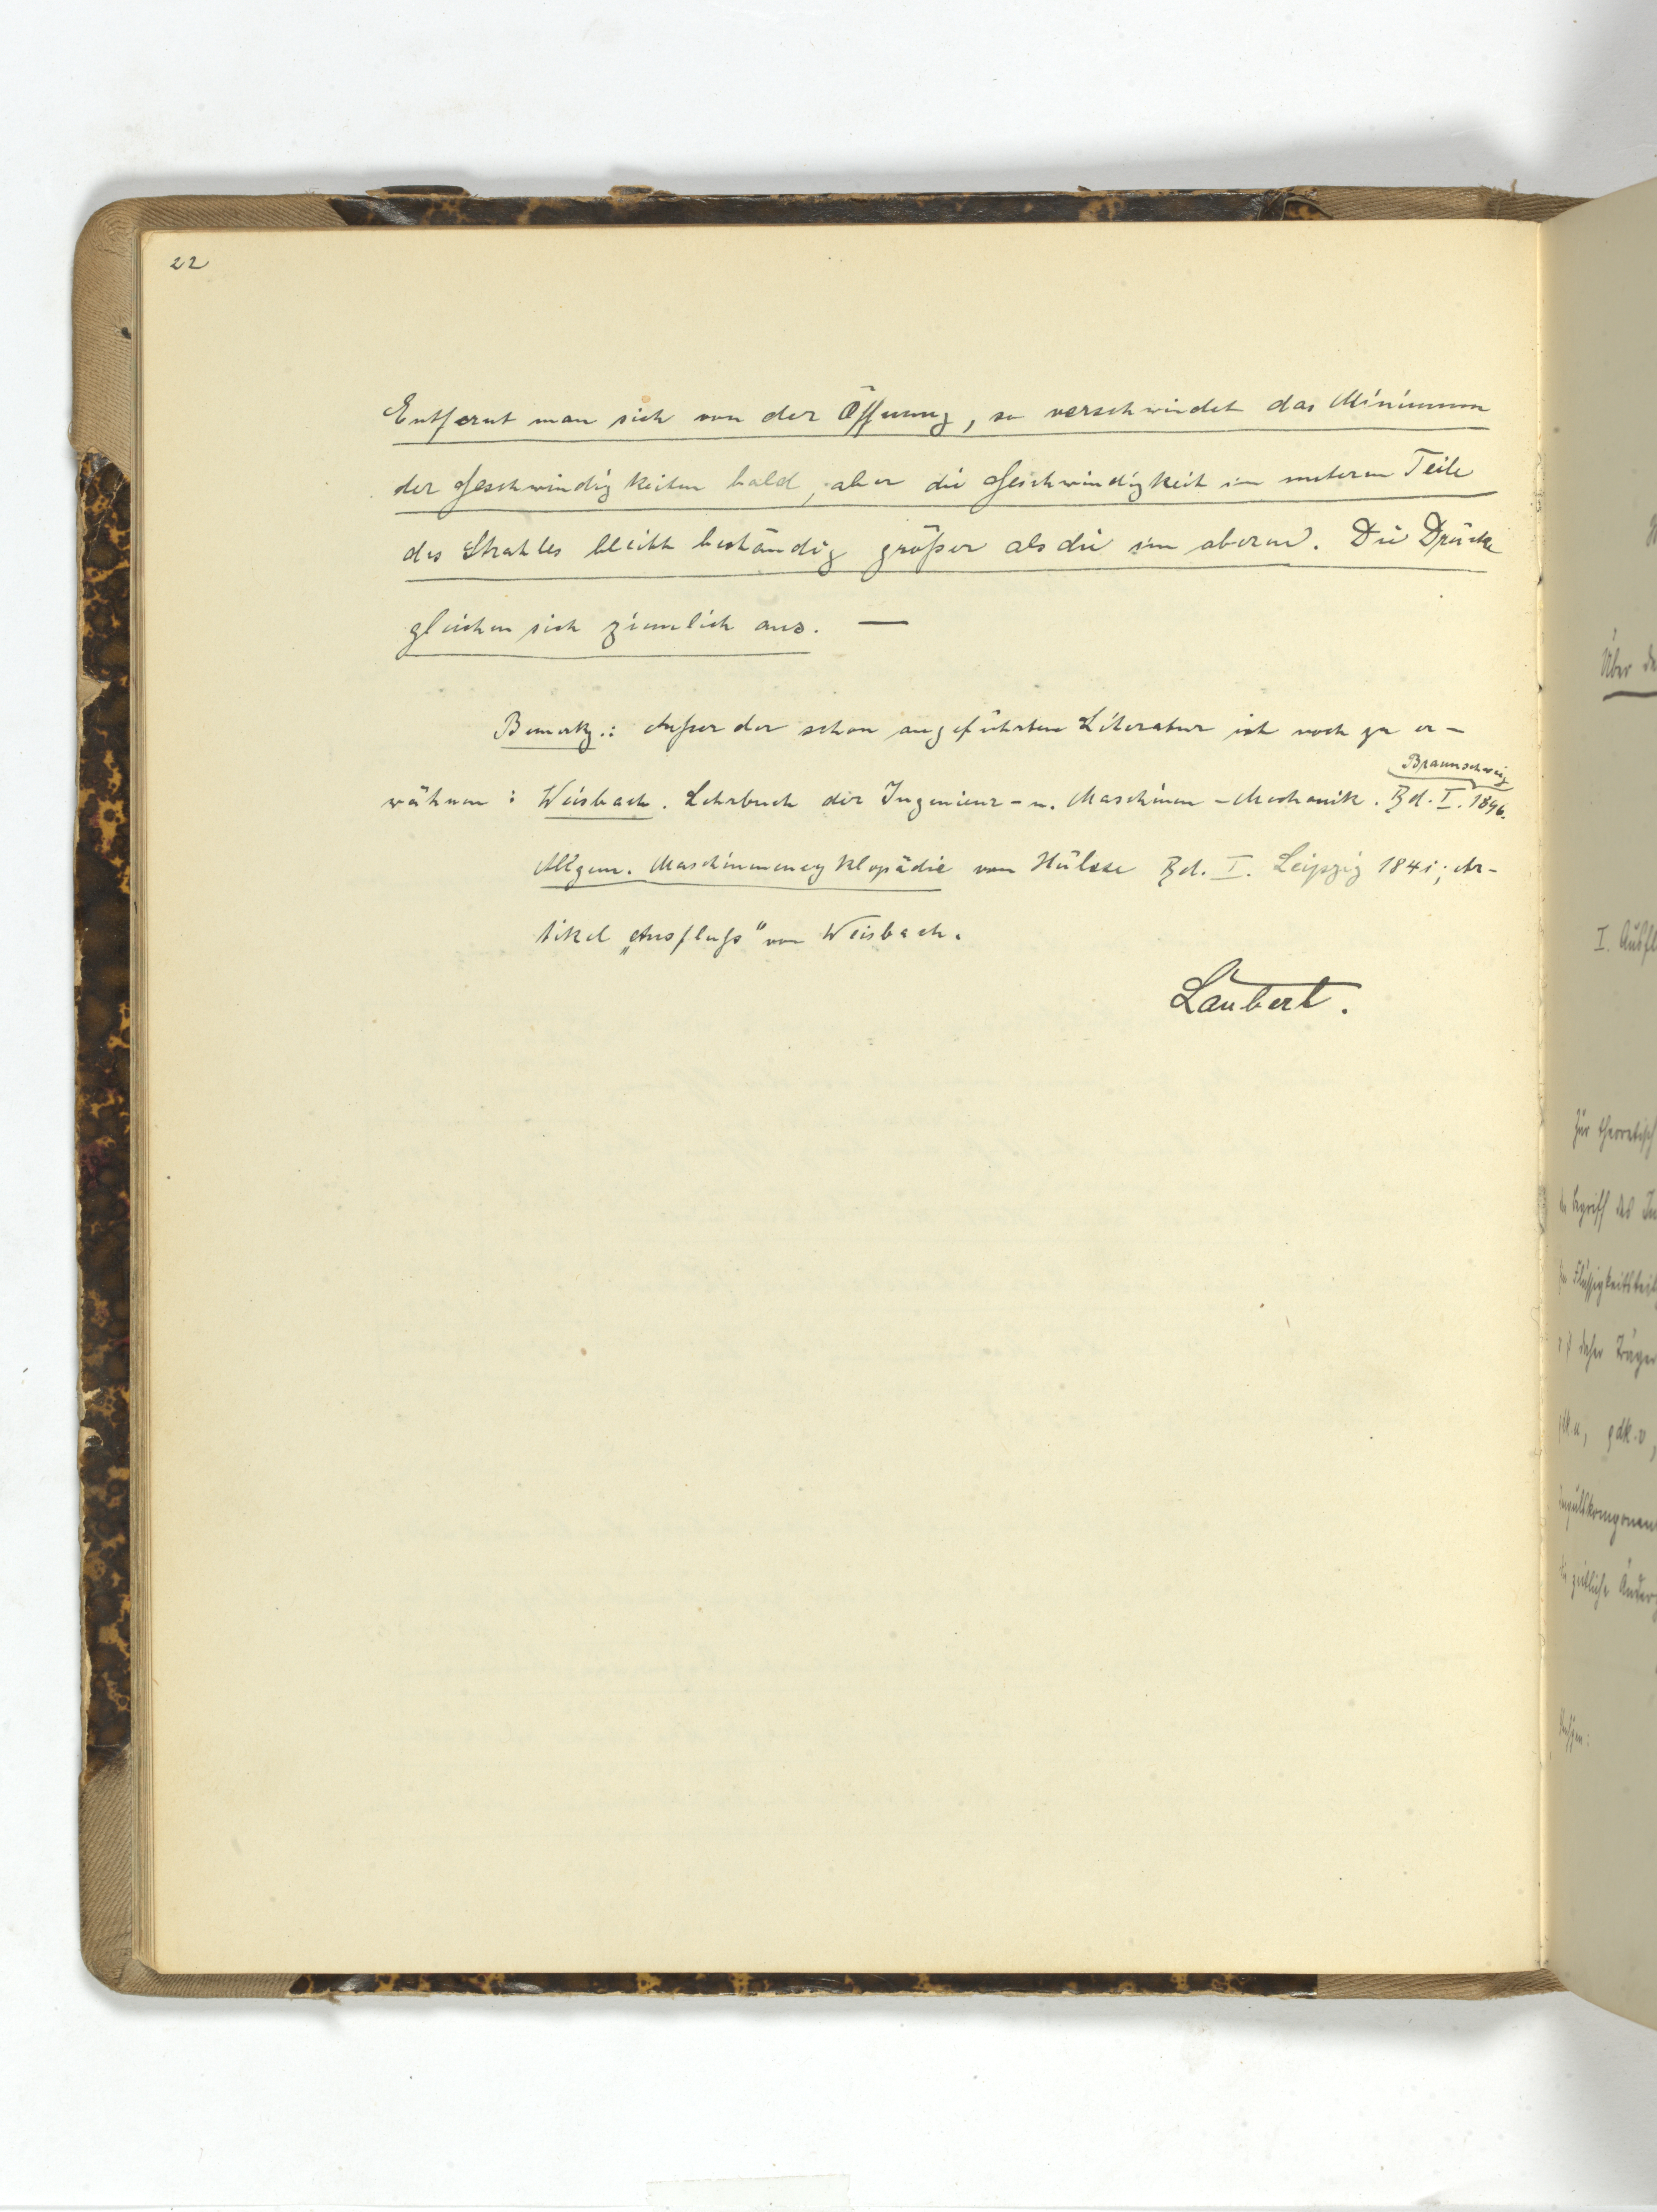 22
Entfernt man sich von der Öffnung, so verschwindet das Minimum
der Geschwindigkeiten bald, aber die Geschwindigkeit im unteren Teile
des Strahles bleibt beständig größer als die im oberen. Die Drücke
gleichen sich ziemlich aus. —
Bemerkg.: Außer der schon angeführten Literatur ist noch zu er-
Braunschweig
wähnen: Weisbach. Lehrbuch der Ingenieur- u. Maschinen-Mechanik. Bd. I. 1846.
Allgem. Maschinenencyklopädie von Hülsse Bd. I. Leipzig 1841; Ar-
tikel „Ausfluß" von Weisbach.
Laubert.
Über
I.
Zur theoretisch
Begriff des
daher Träger
zeitliche